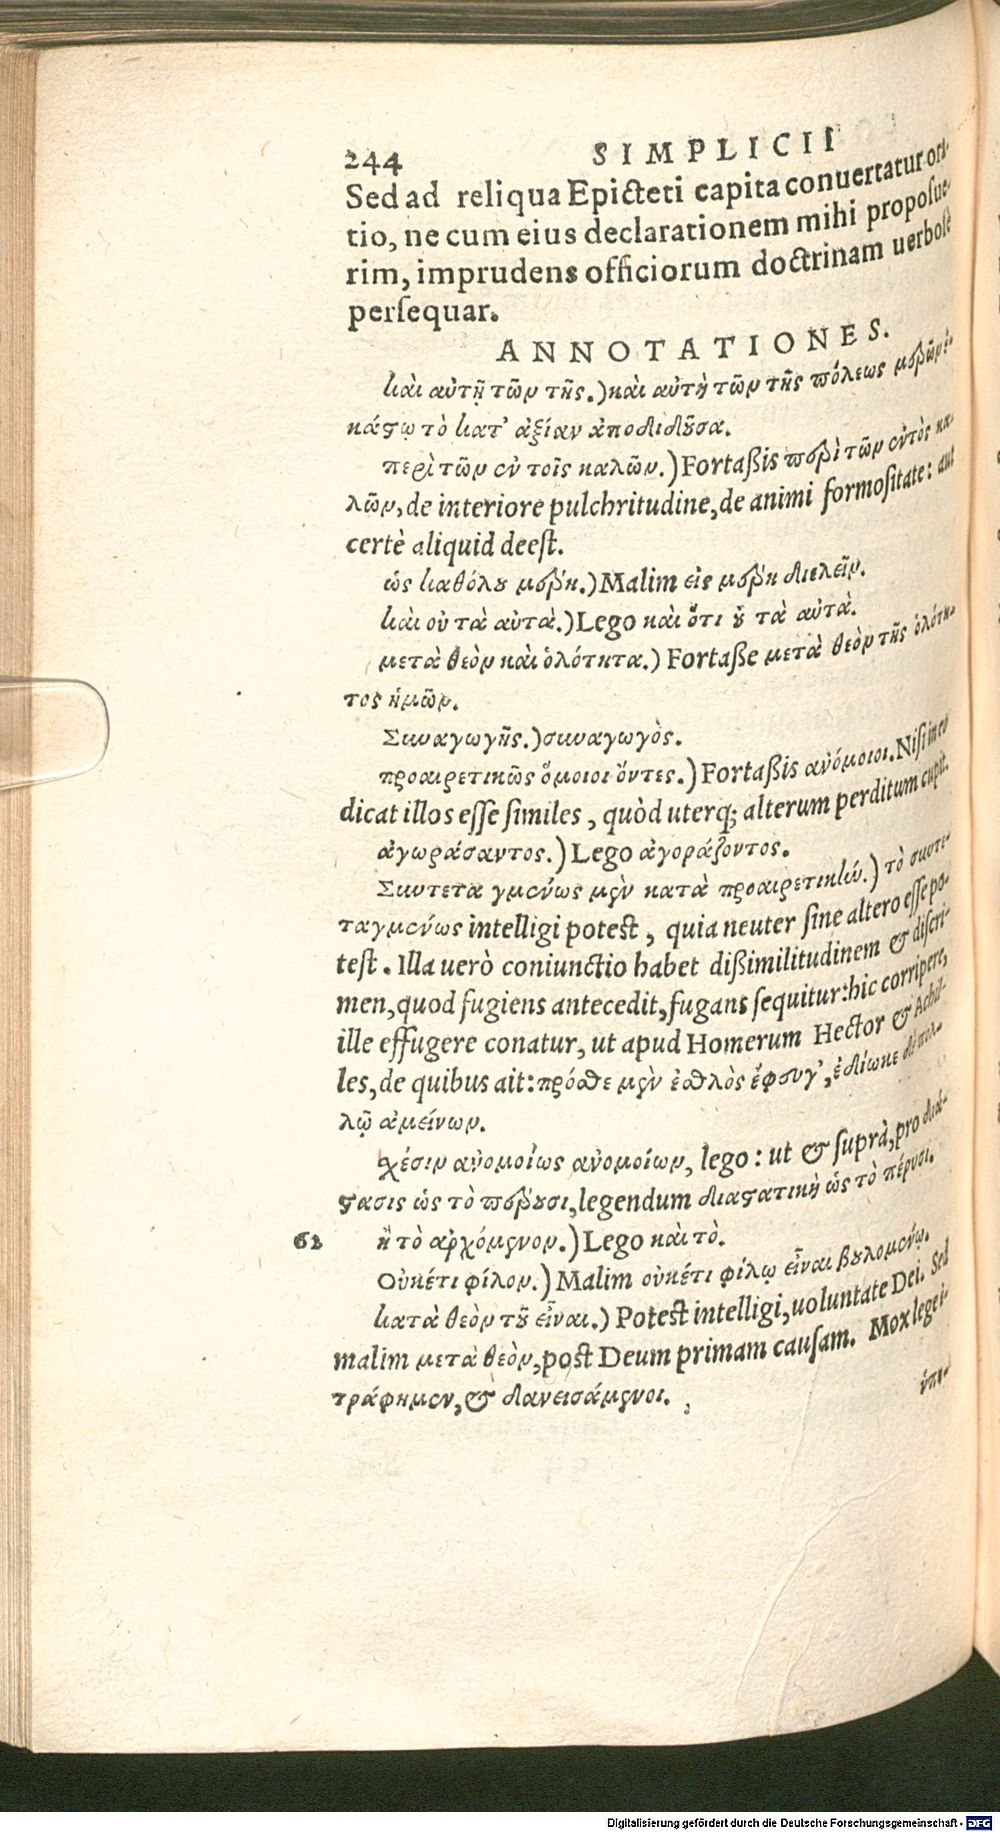 244 SIMPLICII
Sed ad reliqua Epicteti capita conuertatur ora-
tio, ne cum eius declarationem mihi proposue-
rim, imprudens officiorum doctrinam uerbosè
persequar.
ANNOTATIONES.
καὶ αὐτῇ τῶν τῆς.) καὶ αὐτὴ τῶν τῆς πόλεως μερῶν ἑ-
κάστῳ τὸ κατ’ ἀξίαν ἀποδιδοῦσα.
περὶ τῶν ἐν τοῖς καλῶν.) Fortaßis περὶ τῶν ἐντὸς κα-
λῶν, de interiore pulchritudine, de animi formositate: aut
certè aliquid deest.
ὡς καθόλου μέρη.) Malim εἰς μέρη διελεῖν.
καὶ οὐ τὰ αὐτὰ.) Lego καὶ ὅτι οὐ τὰ αὐτὰ.
μετὰ θεὸν καὶ ὁλότητα.) Fortaße μετὰ θεὸν τῆς ὁλότη-
τος ἡμῶν.
Συναγωγῆς.) συναγωγὸς.
προαιρετικῶς ὅμοιοι ὄντες.) Fortaßis ἀνόμοιοι. Nisi in eo
dicat illos esse similes, quòd uterq; alterum perditum cupit.
ἀγωράσαντος.) Lego ἀγοράζοντος.
Συντεταγμένως μὲν κατὰ προαιρετικὴν.) τὸ συντε-
ταγμένως intelligi potest, quia neuter sine altero esse po-
test. Illa uerò coniunctio habet dißimilitudinem & discri-
men, quod fugiens antecedit, fugans sequitur: hic corripere,
ille effugere conatur, ut apud Homerum Hector & Achil-
les, de quibus ait: πρόσθε μὲν ἐσθλὸς ἔφευγ’, ἐδίωκε δὲ πολ-
λῷ ἀμείνων.
χέσιν ἀνομοίως ἀνομοίων, lego: ut & suprà, pro διά-
στασις ὡς τὸ περουσι, legendum διαστατικὴ ὡς τὸ πέρυσι.
62 ἢ τὸ ἀρχόμενον.) Lego καὶ τὸ.
Οὐκέτι φίλον.) Malim οὐκέτι φίλῳ εἶναι βουλομένῳ.
κατὰ θεὸν τοῦ εἶναι.) Potest intelligi, uoluntate Dei. Sed
malim μετὰ θεὸν, post Deum primam causam. Mox lege ἐ-
τράφημεν, & δανεισάμενοι.
ὑπε-
Digitalisierung gefördert durch die Deutsche Forschungsgemeinschaft - DFG